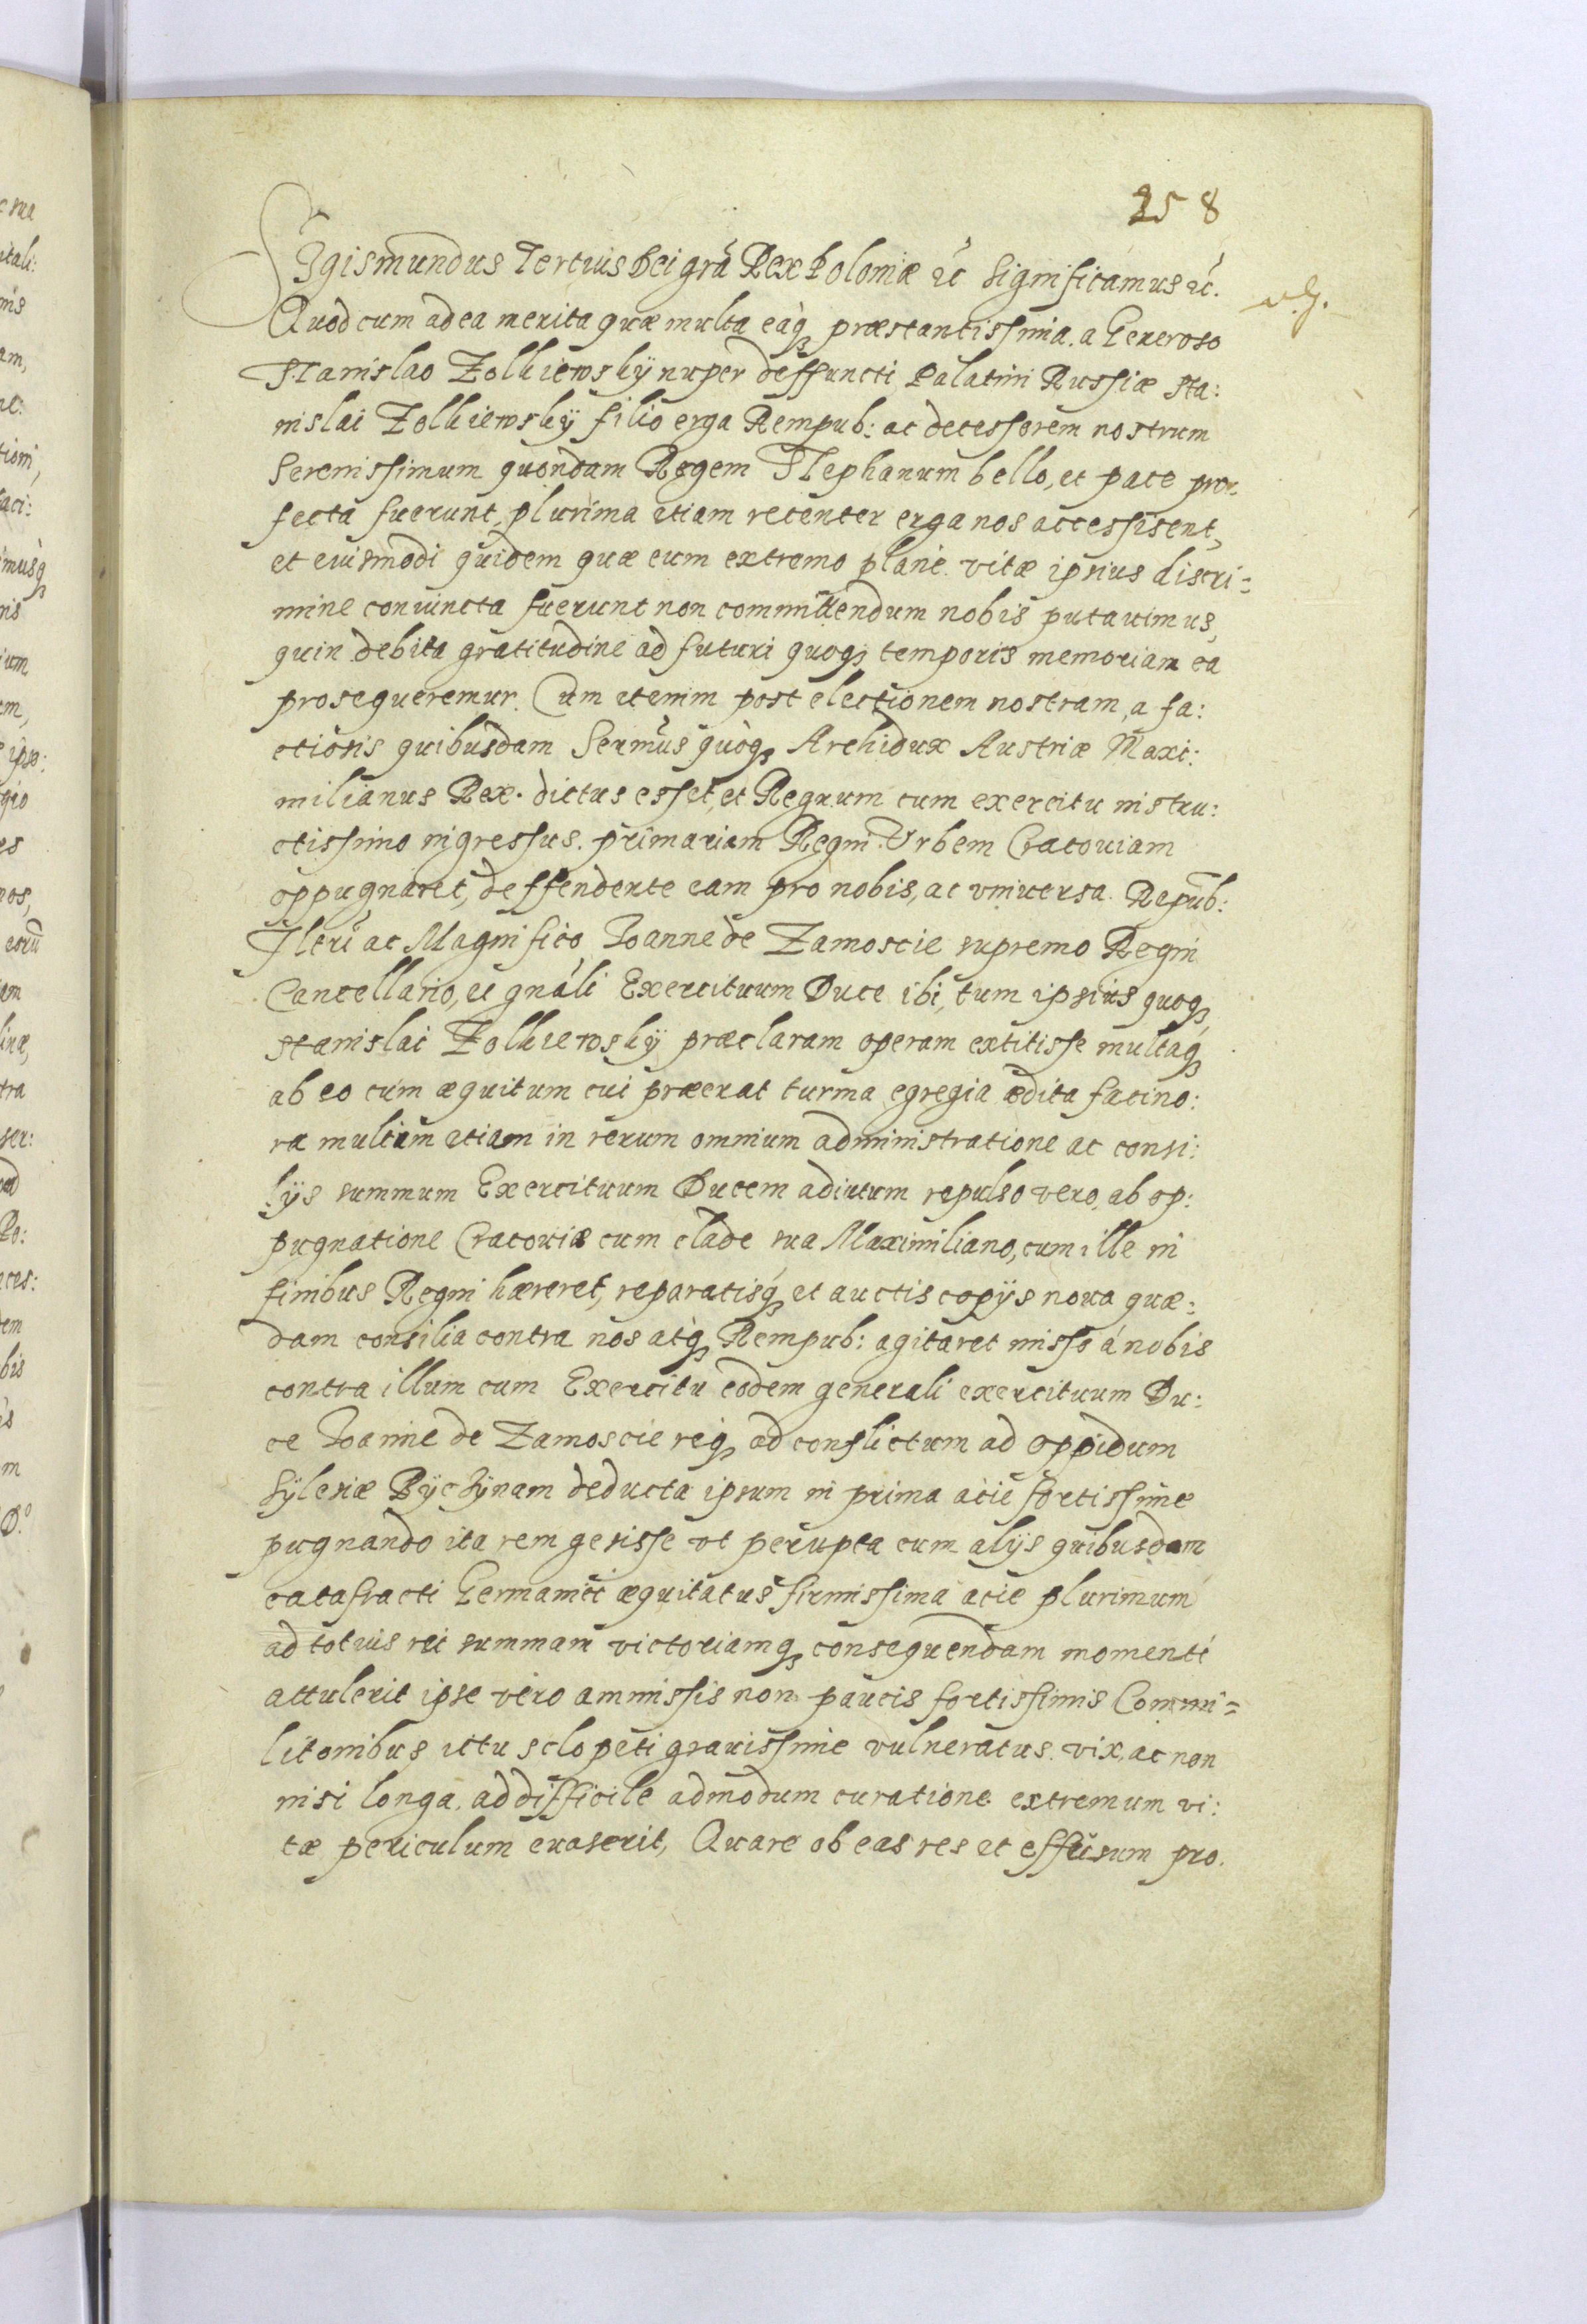 258
Sigismundus Tertius Dei grã Rex Poloniæ ec̃ significamus ec̃.
Quod cum ad ea merita quæ multa eaq; præstantissima a Generoso
Stanislao Zolkiewskÿ nuper deffuncti Palatini Russiæ Sta:
nislai Zolkiewskÿ filio erga Rempub: ac decessorem nostrum
Serenissimum quondam Regem Stephanum bello, et pace pro-
fecta fuerunt, plurima etiam recenter erga nos accessisent,
et eiusmodi quidem quæ cum extremo plane vitæ ipsius discri-
mine coniuncta fuerunt non committendum nobis putauimus,
quin debita gratitudine ad futuri quoq; temporis memoriam ea
prosequeremur. Cum etenim post electionem nostram, a fa:
ctiosis quibusdam Sermũs quoq; Archidux Austriæ Maxi:
milianus Rex dictus esset, et Regnum cum exercitu instru:
ctissimo ingressus. primariam Regni Vrbem Cracouiam
oppugnaret, deffendente eam pro nobis, ac vniuersa Repub:
Illeri ac Magnifico Joanne de Zamoscie supremo Regni
Cancellario, et gnãli Exercituum Duce ibi, tum ipsius quoq;
Stanislai Zolkiewskÿ præclaram operam extitisse multaq;
ab eo cum æquitum cui præerat turma egregia ædita facino:
ra multum etiam in rerum omnium administratione ac consi:
lijs summum Exercituum Ducem adiutum repulso vero, ab op:
pugnatione Cracouiæ cum clade sua Maximiliano, cum ille in
finibus Regni hæreret, reparatisq; et auctis copijs noua quæ-
dam consilia contra nos atq; Rempub: agitaret misso á nobis
contra illum cum Exercitu eodem generali exercituum Du:
ce Joanne de Zamoscie req; ad conflictum ad oppidum
Sylesiæ Byczynam deducta ipsum in prima acie fortissime
pugnando ita rem gesisse vt perupta cum alijs quibusdam
catafracti Germanici æquitatus firmissima acie plurimum
ad totius rei summam victoriamq; consequendam momenti
attulerit ipse vero ammissis non paucis fortissimis Commi=
litonibus ictu sclopeti grauissime vulneratus. vix, ac non
nisi longa, ad difficile admodum curatione extremum vi:
tæ periculum euaserit, Quare ob eas res et effusum pro.